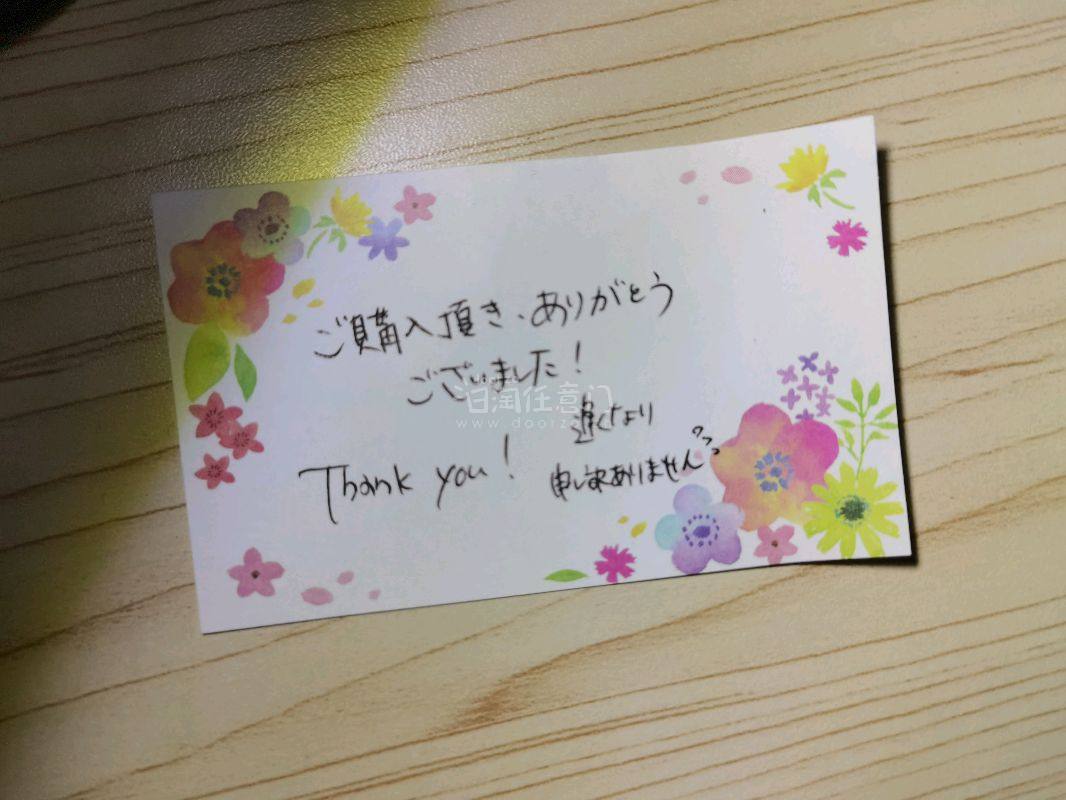 ご購入頂き、ありがとう
ございました!
Thank you!
遅くなり
申し訳ありません
日淘任意门